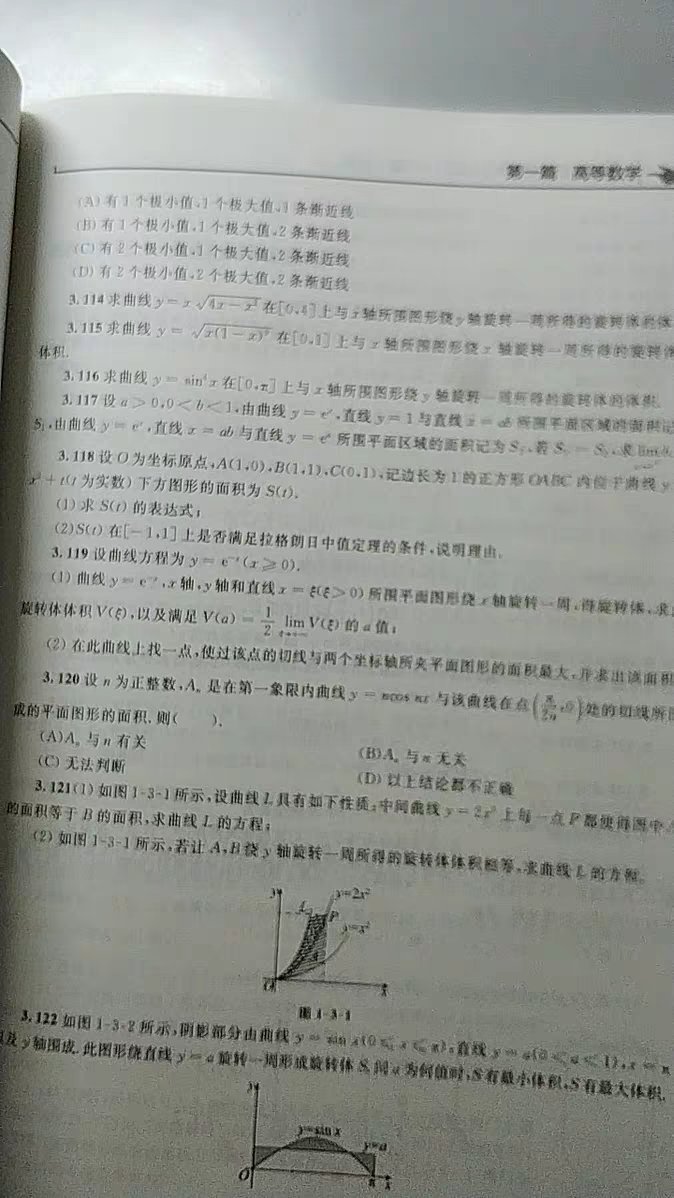 第一篇 高等数学
(A) 有 1 个极小值,1 个极大值,1 条渐近线
(B) 有 1 个极小值,1 个极大值,2 条渐近线
(C) 有 2 个极小值,1 个极大值,2 条渐近线
(D) 有 2 个极小值,2 个极大值,2 条渐近线
3.114 求曲线 y = x√(4x − x²) 在[0,4]上与 x 轴所围图形绕 y 轴旋转一周所得的旋转体的体
3.115 求曲线 y = 在[0,1]上与 x 轴所围图形绕 x 轴旋转一周所得的旋转体
体积.
3.116 求曲线 y = x 在[0,π]上与 x 轴所围图形绕 y 轴旋转一周所得的旋转体的体积.
3.117 设 a > 0,0 < b < 1,由曲线 y = eˣ,直线 y = 1 与直线 x = ab 所围平面区域的面积记
S₁,由曲线 y = eˣ,直线 x = ab 与直线 y = 所围平面区域的面积记为 S₂,若 S₁ = S₂,求 lim
3.118 设 O 为坐标原点,A(1,0),B(1,1),C(0,1),记边长为 1 的正方形 OABC 内位于曲线 y
x² + t(t 为实数) 下方图形的面积为 S(t).
(1) 求 S(t) 的表达式;
(2) S(t) 在[−1,1]上是否满足拉格朗日中值定理的条件,说明理由.
3.119 设曲线方程为 y = e⁻ˣ(x ⩾ 0).
(1) 曲线 y = e⁻ˣ,x 轴,y 轴和直线 x = ξ(ξ > 0) 所围平面图形绕 x 轴旋转一周,得旋转体,求
旋转体体积 V(ξ),以及满足 V(a) = 1/2 lim V(ξ) 的 a 值;
(2) 在此曲线上找一点,使过该点的切线与两个坐标轴所夹平面图形的面积最大,并求出该面积
3.120 设 n 为正整数,Aₙ 是在第一象限内曲线 y = ncos nx 与该曲线在点(π/2n,0)处的切线所围
成的平面图形的面积,则( ).
(A) Aₙ 与 n 有关 (B) Aₙ 与 n 无关
(C) 无法判断 (D) 以上结论都不正确
3.121 (1) 如图 1-3-1 所示,设曲线 L 具有如下性质:中间曲线 y = 2x² 上每一点 P 都使得图中
的面积等于 B 的面积,求曲线 L 的方程;
(2) 如图 1-3-1 所示,若让 A,B 绕 y 轴旋转一周所得的旋转体体积相等,求曲线 L 的方程.
y
y=2x²
P
y=x²
x
图 1-3-1
3.122 如图 1-3-2 所示,阴影部分由曲线 y = sin x(0 ⩽ x ⩽ π),直线 y = a(0 ⩽ a ⩽ 1),x = π
及 y 轴围成.此图形绕直线 y = a 旋转一周形成旋转体 S,问 a 为何值时,S 有最小体积,S 有最大体积.
y
y=sin x
y=a
O
π
x